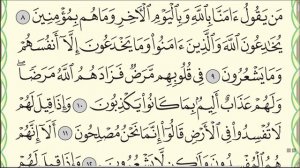 مَن يَقُولُ ءَامَنَّا بِٱللَّهِ وَبِٱلْيَوْمِ ٱلْأَخِرِ وَمَا هُم بِمُؤْمِنِينَ ٨
يُخَٰدِعُونَ ٱللَّهَ وَٱلَّذِينَ ءَامَنُوا۟ وَمَا يَخْدَعُونَ إِلَّآ أَنفُسَهُمْ
وَمَا يَشْعُرُونَ ٩ فِى قُلُوبِهِم مَّرَضٌ فَزَادَهُمُ ٱللَّهُ مَرَضًا ۖ
وَلَهُمْ عَذَابٌ أَلِيمٌۢ بِمَا كَانُوا۟ يَكْذِبُونَ ١٠ وَإِذَا قِيلَ لَهُمْ
لَا تُفْسِدُوا۟ فِى ٱلْأَرْضِ قَالُوٓا۟ إِنَّمَا نَحْنُ مُصْلِحُونَ ١١ أَلَآ إِنَّهُمْ
هُمُ ٱلْمُفْسِدُونَ وَلَٰكِن لَّا يَشْعُرُونَ ١٢ وَإِذَا قِيلَ